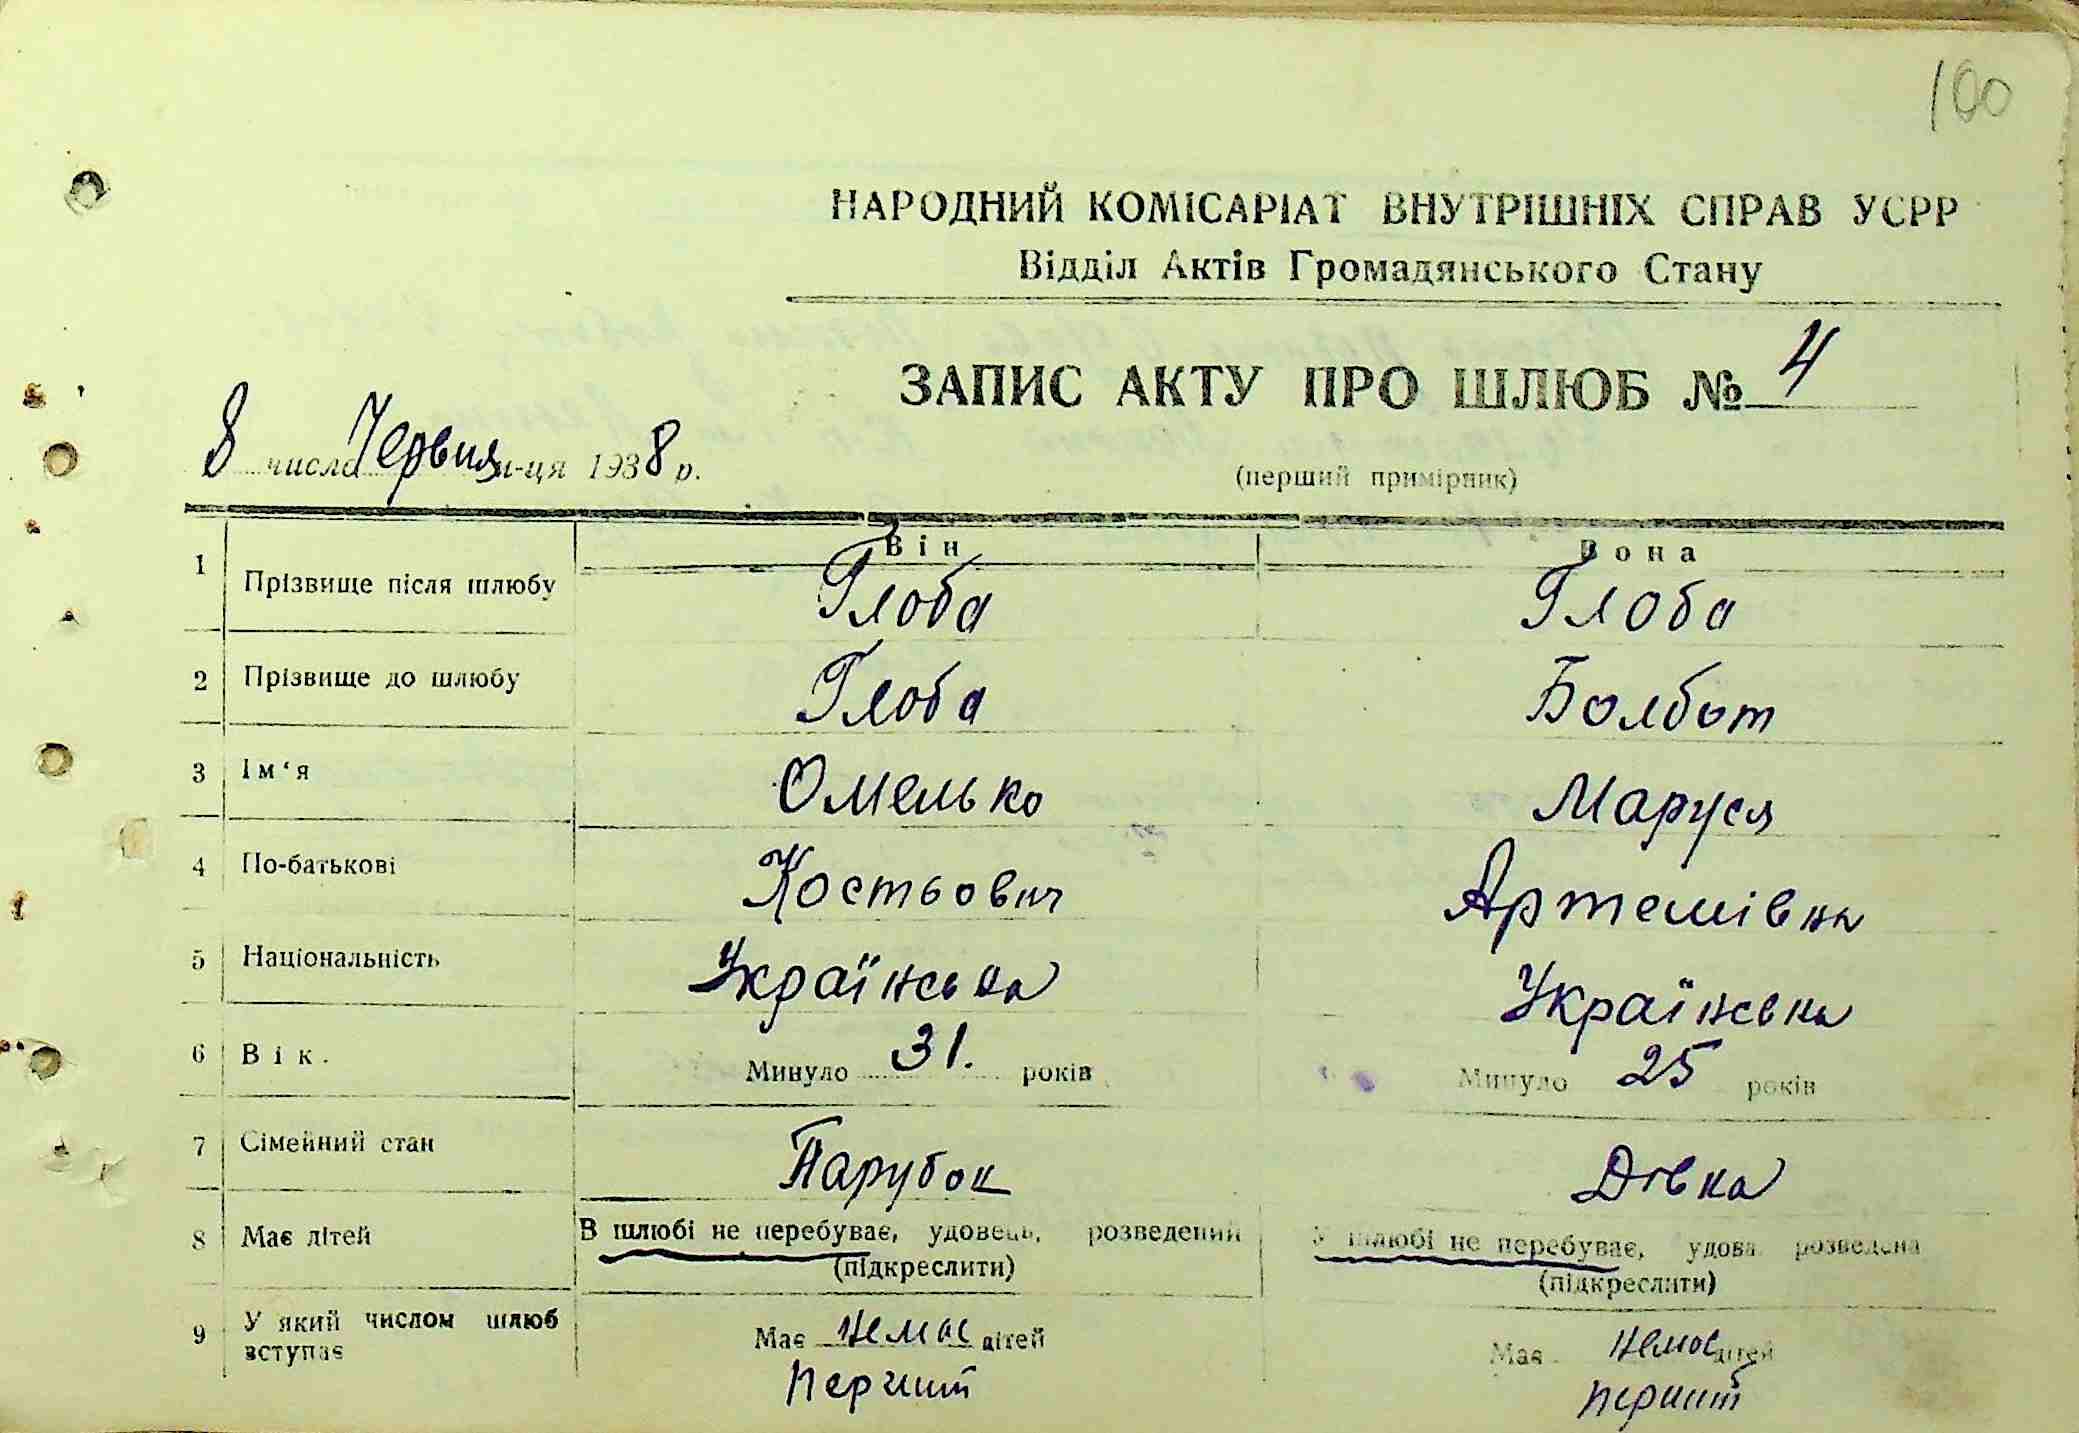 100
НАРОДНИЙ КОМІСАРІАТ ВНУТРІШНІХ СПРАВ УСРР
Відділ Актів Громадянського Стану
ЗАПИС АКТУ ПРО ШЛЮБ № 4
8 числа Червня м-ця 1938 р.
(перший примірник)
Він Вона
1 Прізвище після шлюбу Глоба Глоба
2 Прізвище до шлюбу Глоба Болбот
3 Ім‘я Омелько Маруся
4 По-батькові Костьович Артемівна
5 Національність Українська Українська
6 Вік. Минуло 31. років Минуло 25 років
7 Сімейний стан Парубок Дівка
8 Має дітей В шлюбі не перебуває, удовець, розведений У шлюбі не перебуває, удова розведена
(підкреслити) (підкреслити)
9 У який числом шлюб вступає Має немає дітей Має немає дітей
перший перший